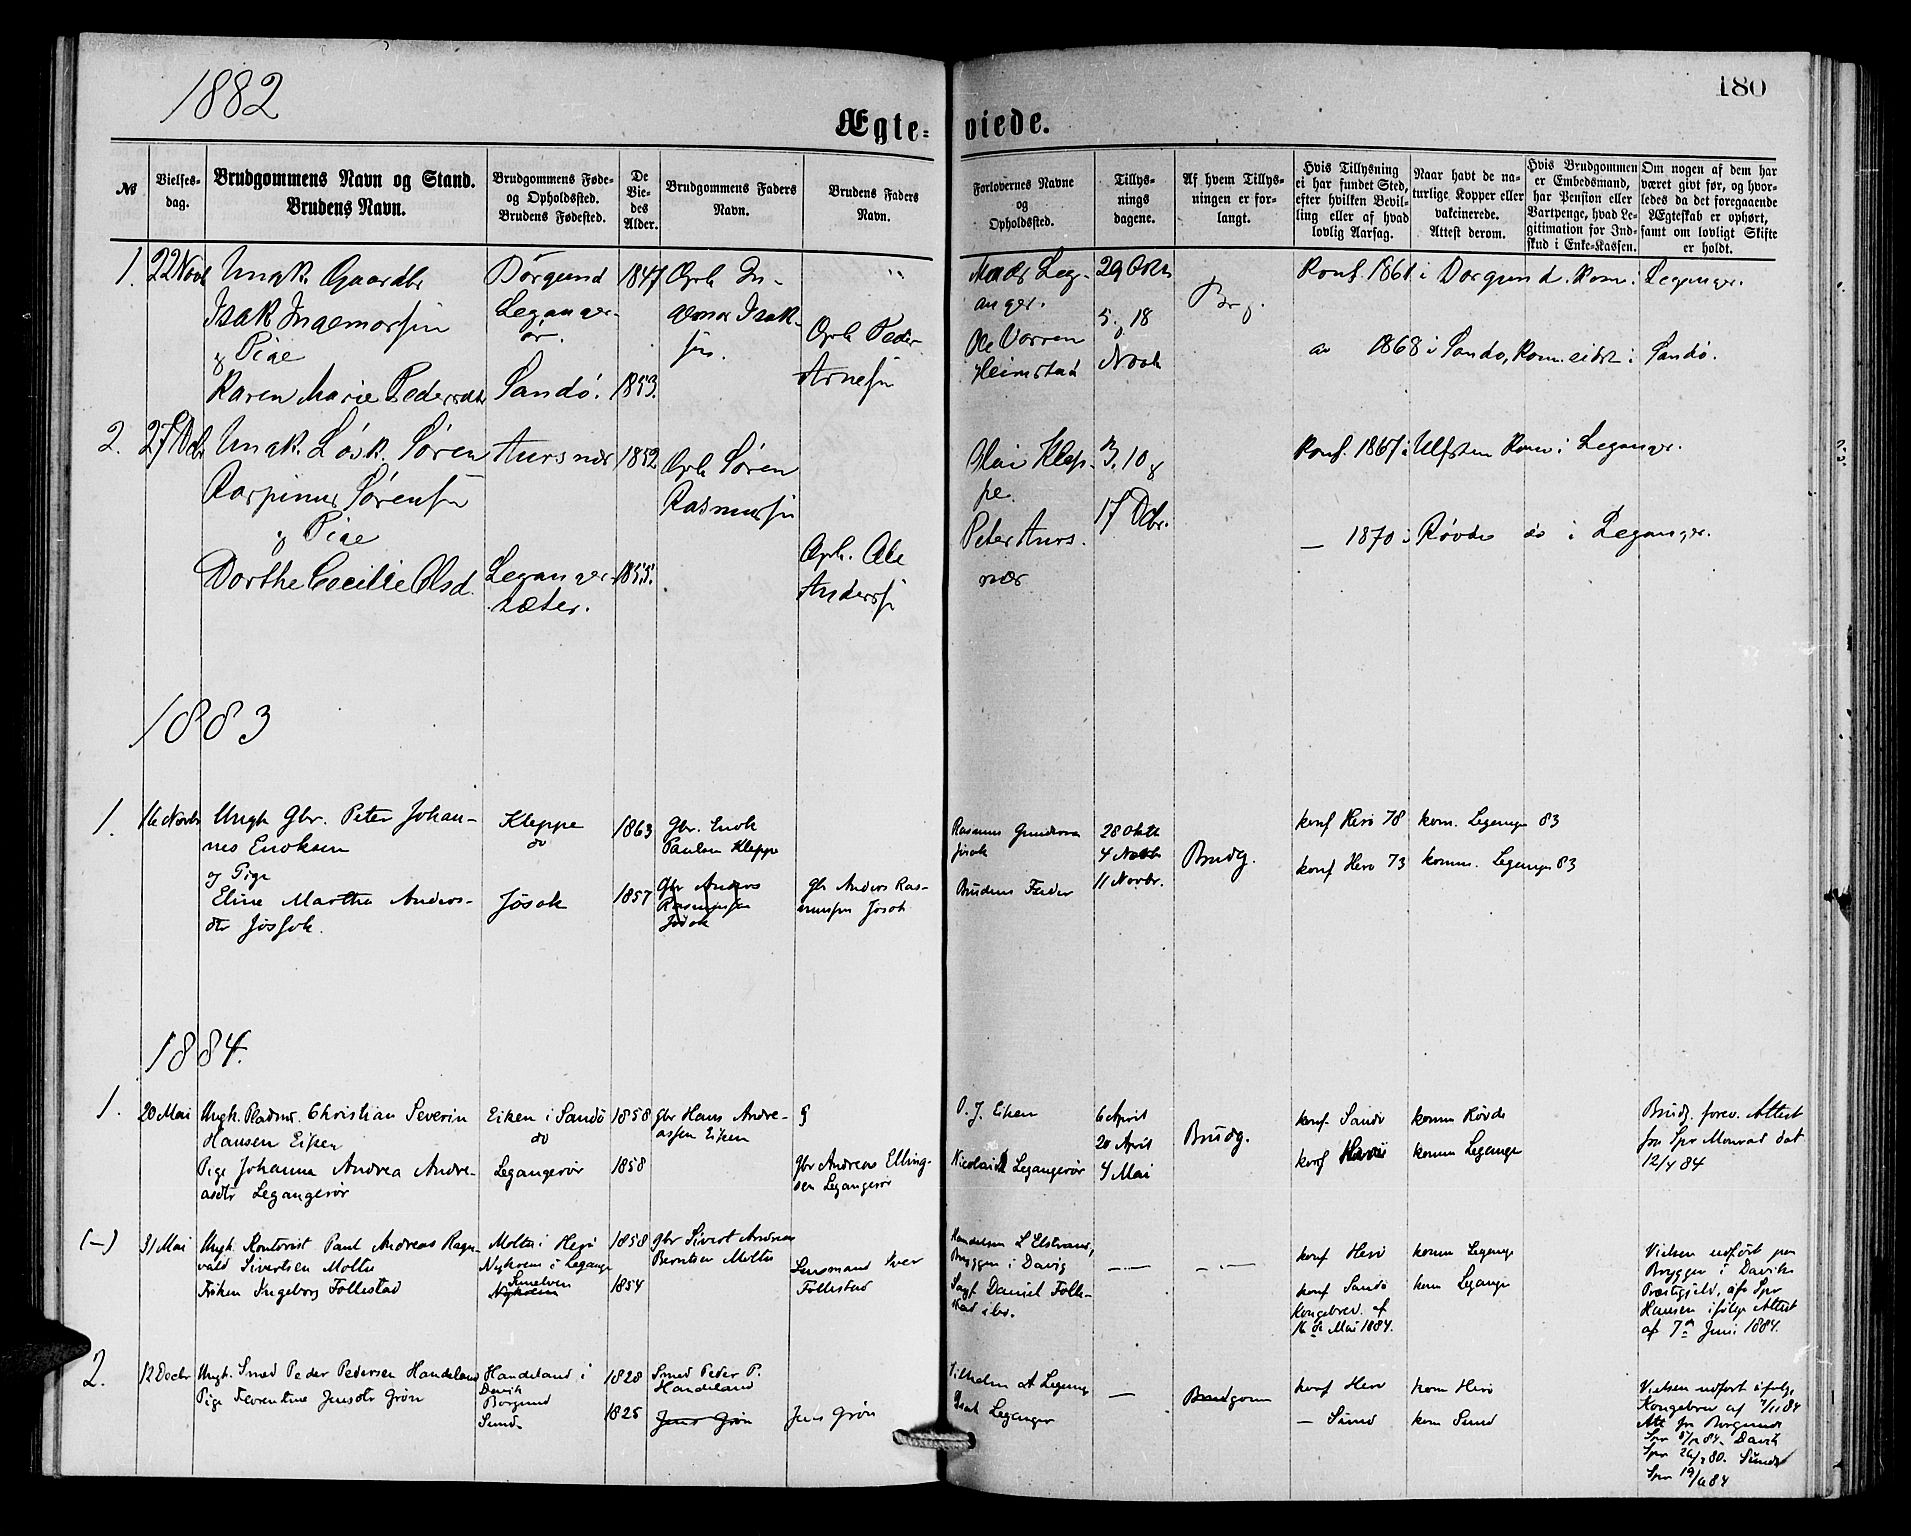 1882
180
Ægte-viede.
№
Vielses-
dag.
Brudgommens Navn og Stand.
Brudens Navn.
Brudgommens Føde-
og Opholdssted.
Brudens Fødested.
De
Vie-
des
Alder.
Brudgommens Faders
Navn.
Brudens Faders
Navn.
Forlovernes Navne
og
Opholdssted.
Tillys-
nings
dagene.
Af hvem Tillys-
ningen er for-
langt.
Hvis Tillysning
ei har fundet Sted,
efter hvilken Bevil-
ling eller af hvad
lovlig Aarsag.
Naar havt de na-
turlige Kopper eller
vakcinerede.
Attest derom.
Hvis Brudgommen
er Embedsmand,
har Pension eller
Vartpenge, hvad Le-
gitimation for Ind-
skud i Enke-Kassen.
Om nogen af dem har
været givt før, og hvor-
ledes da det foregaaende
Ægteskab er ophørt,
samt om lovligt Skifte
er holdt.
1.
22 Novb
Ungk. Gaardbr
Isak Ingemorsen
& Pige
Karen Marie Pedersdtr
Borgund
Leganger-
ør.
Sandö.
1847
1853.
Gbr In-
gemor Isak-
sen.
"
Gbr Peder
Arnesen
Leg-
anger.
Ole Vorren
Heimstad
29 Oktr
5, 18
Novb
Brg.
Konf. 1861 i Borgund. Kom. i Leganger.
do 1868 i Sando, Kom. sidst i Sandö.
2.
27 Dcbr
Ungk. Løsk. Søren
Karpinus Sørensen
& Pige
Dorthe Cecilie Olsd.
Aursnes
Leganger-
sæter.
1852
1855.
Gbr Søren
Rasmussen
Gbr. Ole
Anderss
Olai Klep-
pe.
Peter Aurs-
nær
3, 10 &
17 Dcbr.
Konf. 1867 i Ulfsten Kom i Leganger.
— 1870 i Røvde do i Leganger.
1883
1.
16 Novbr
Ungk Gbr. Peter Johan-
nes Enoksen
og Pige
Eline Martha Anders-
dtr Jøssok.
Kleppe
do
Jøsok
1863
1857
Gbr. Enok
Paulsen Kleppe
Gbr Anders
Rasmussen
Jøsok
gbr Anders Ras-
mussen Jøsok
Rasmus
Jøsok
Brudens Fader
28 Oktb
4 Novbr
11 Novbr.
Brudg.
konf Herö 78
konf Herö 73
kom. Legange 83
komm. Legange 83
1884.
1.
20 Mai
Ungk. Pladsm. Christian Severin
Hansen Eiken
Pige Johanna Andrea Andre-
asdtr Legangerør
Eiken i Sandö
do
Legangerør
1858
1858
Gbr Hans Andre-
assen Eiken
Gbr Andreas Elling-
sen Legangerør
O. J. Eiken
Nicolai Legangerør
6 April
20 April
4 Mai
Brudg.
konf Sandö
konf Herö
komm Røvde
komm Legange
Brudg. forev. Attest
fra Spr Monrad dat
12/4 84
(—)
31 Mai
Ungk. Kontorist Paul Andreas Ragn-
vald Sivertsen Moltu
Frøken Ingeborg Follestad
Moltu i Herö
Nykrem i Legange
1858
1854
Gbr Sivert Andreas
Berntsen Moltu
Lensmand Iver
Follestad
Handelsm L Elstrand,
Bryggen i Davig
Sagf. Daniel Folle-
stad ibd.
—.—
—.—
konf Herö
konf Sandö
Kongebrev. af
16 de Mai 1884.
komm Legange
kom Legange
Vielsen udført paa
Bryggen i Daviks
Præstegjeld, af Spr
Hansen ifølge Attest
af 7 Juni 1884.
2.
12 Decbr
Ungk. Smed Peder Pedersen Handeland
Pige Severine Jensdtr Grön
Handeland i
Davik
Borgund
Sund
1828
1825
Smed Peder P.
Handeland
Jens Grön
Jens Grön
Vilhelm at Legange
Isak Leganger
—
Brudgom
konf Herö
— Sund
kom Herö
kom Sund
Vielsen udført ifølge
Kongebrev af 7/11 84
Att fra Borgund
Davik
Spr 19/11 84